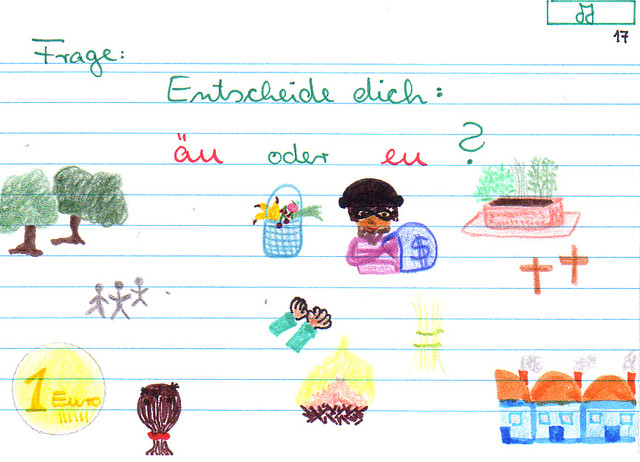 17
Frage:
Entscheide dich:
äu oder eu ?
$
1 Euro